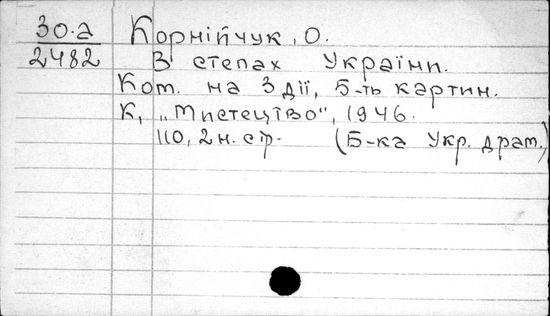 30.а
2482
Корнійчук, О.
В степах України.
Ком. на 3 дії, 5-ть картин.
К, „Мистецтво", 1946.
110, 2 н. стр. (Б-ка Укр. драм.)